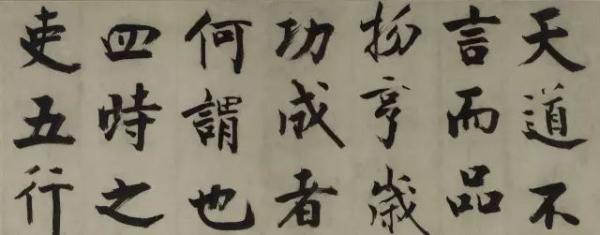 天道不
言而品
物亨歲
功成者
何謂也
四時之
吏五行